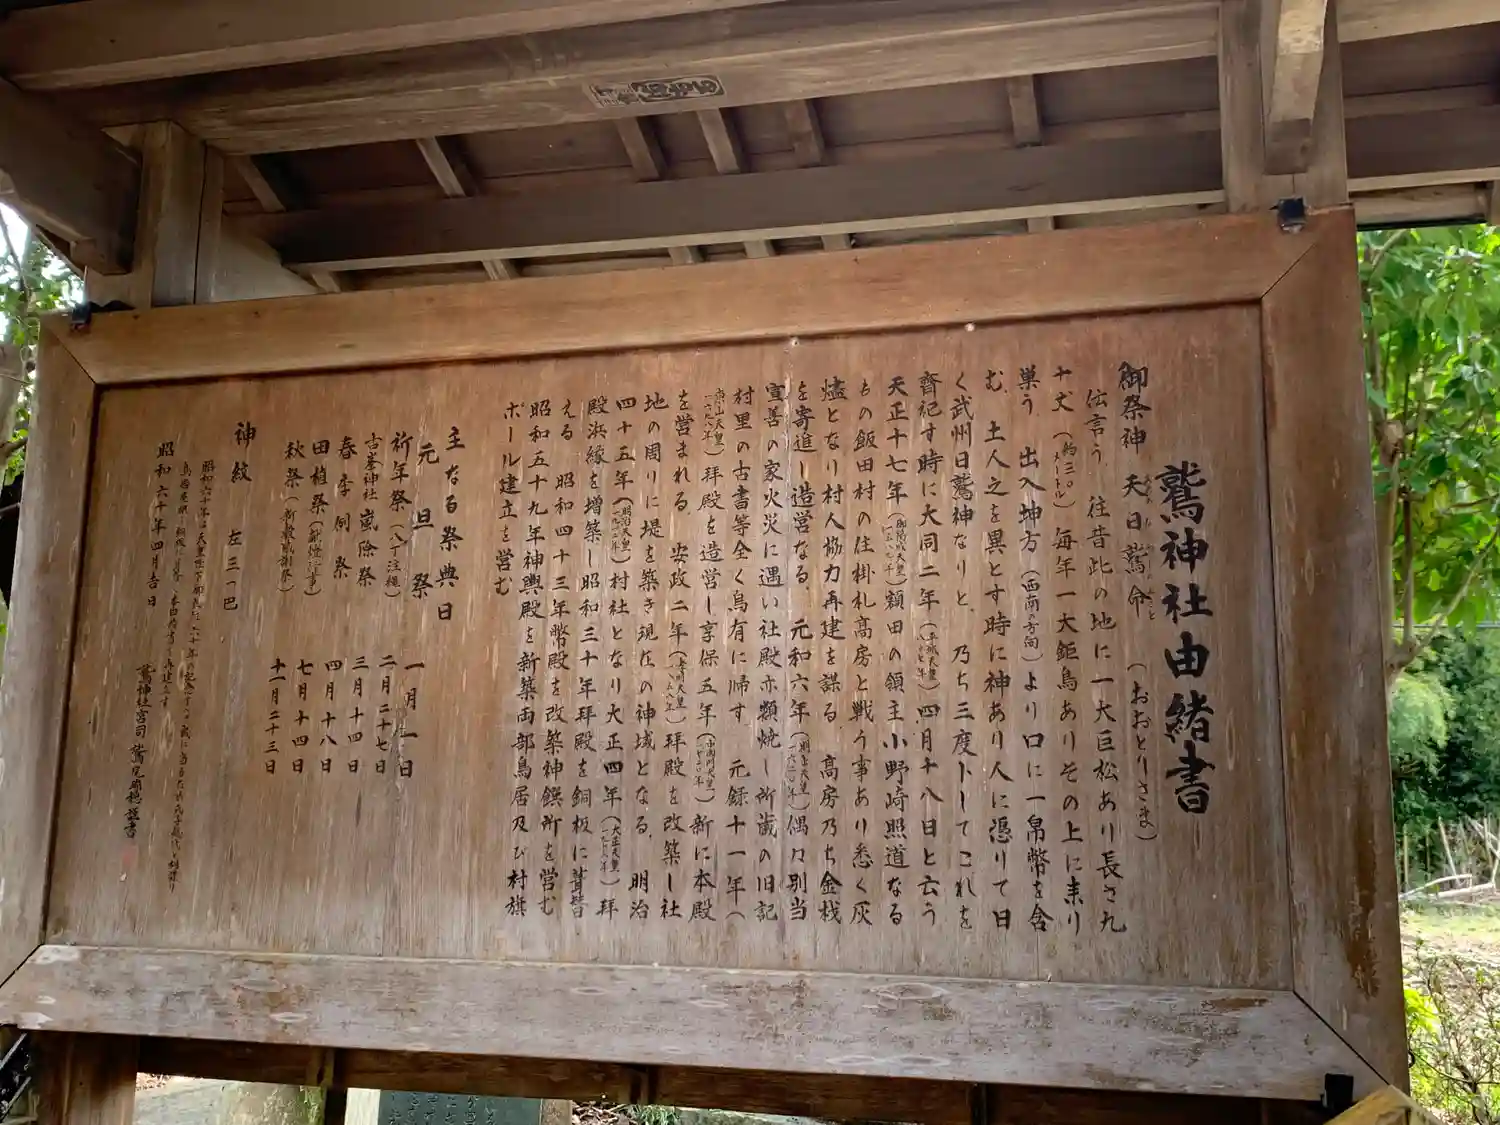 鷲神社由緒書
御祭神 天日鷲命 (おおとりさま)
伝言う 往昔此の地に一大巨松あり長さ九
十丈(約三〇〇メートル)毎年一大鉅鳥ありその上に来り
巣う 出入坤方(西南の方向)より口に一帛幣を含
む 土人之を異とす時に神あり人に憑りて曰
く武州日鷲神なりと 乃ち三度卜してこれを
齊祀す時に大同二年(平城天皇)四月十八日と云う
天正十七年(御陽成天皇 一五八九年)額田の領主小野崎照道なる
もの飯田村の住掛札高房と戦う事あり悉く灰
燼となり村人協力再建を謀る 高房乃ち金桟
を寄進し造営なる 元和六年(一六二〇年)偶々別当
宣善の家火災に遇い社殿亦類焼し所蔵の旧記
村里の古書等全く烏有に帰す 元録十一年(
東山天皇)拝殿を造営し享保五年(一七二〇年)新に本殿
を営まれる 安政二年(孝明天皇 一八五五年)拝殿を改築し社
地の周りに堤を築き現在の神域となる 明治
四十五年(明治天皇 一九一二年)村社となり大正四年(大正天皇 一九一五年)拝
殿浜縁を増築し昭和三十年拝殿を銅板に葺替
える 昭和四十三年幣殿を改築神饌所を営む
昭和五十九年神輿殿を新築両部鳥居及び村旗
ポール建立を営む
主なる祭典日
元旦祭 一月一日
祈年祭(八丁注縄) 二月二十七日
古峯神社嵐除祭 三月十四日
春季例祭 四月十八日
田植祭 七月十四日
秋祭(新穀感謝祭) 十一月二十三日
神紋 左三つ巴
昭和六十年四月吉日
鷲神社宮司